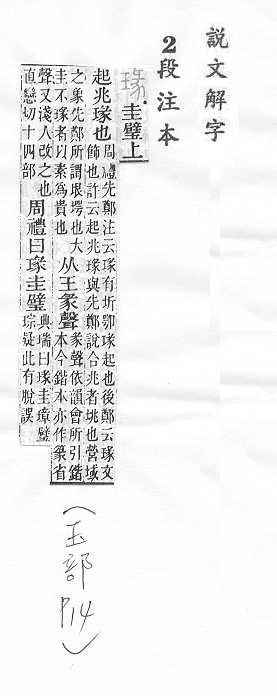 說文解字
2段注本
瑑 圭璧上
起兆瑑也 周禮先鄭注云瑑有圻鄂瑑起也後鄭云瑑文
飾也許云起兆瑑與先鄭說合兆者垗也營域
之象先鄭所謂垠堮也大
圭不瑑者以素為貴也 从王彖聲 彖聲依韻會所引鍇
本今鍇本亦作篆省
聲又淺人改之也
直戀切十四部 周禮曰瑑圭璧 典瑞曰瑑圭璋璧
琮疑此有脫誤
(玉部 P.14)